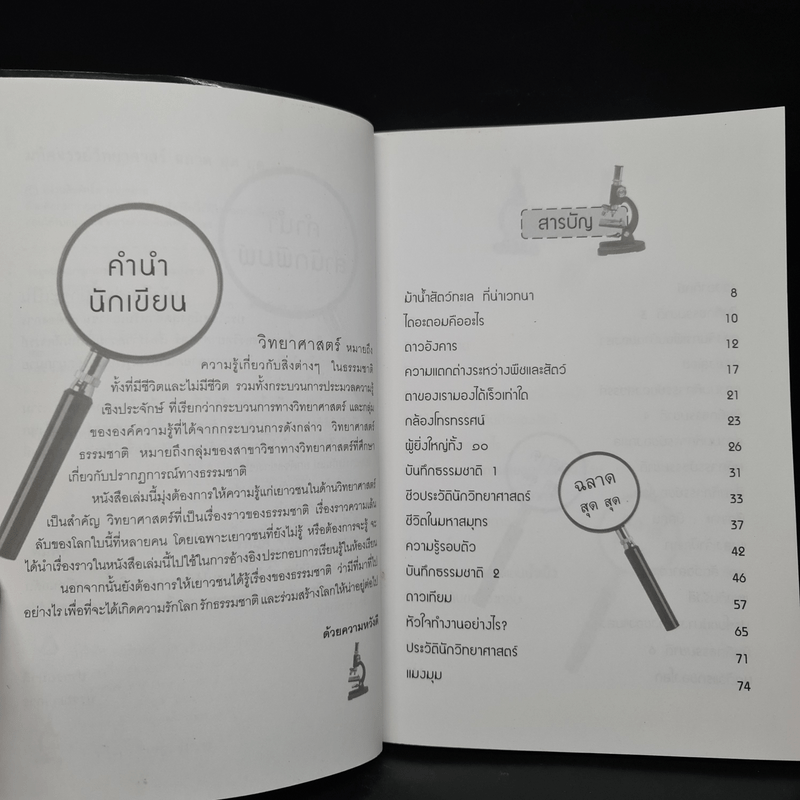 คำนำ
นักเขียน
วิทยาศาสตร์ หมายถึง
ความรู้เกี่ยวกับสิ่งต่างๆ ในธรรมชาติ
ทั้งที่มีชีวิตและไม่มีชีวิต รวมทั้งกระบวนการประมวลความรู้
เชิงประจักษ์ ที่เรียกว่ากระบวนการทางวิทยาศาสตร์ และกลุ่ม
ขององค์ความรู้ที่ได้จากกระบวนการดังกล่าว วิทยาศาสตร์
ธรรมชาติ หมายถึงกลุ่มของสาขาวิชาทางวิทยาศาสตร์ที่ศึกษา
เกี่ยวกับปรากฏการณ์ทางธรรมชาติ
หนังสือเล่มนี้มุ่งต้องการให้ความรู้แก่เยาวชนในด้านวิทยาศาสตร์
เป็นสำคัญ วิทยาศาสตร์ที่เป็นเรื่องราวของธรรมชาติ เรื่องราวความเร้น
ลับของโลกใบนี้ที่หลายคน โดยเฉพาะเยาวชนที่ยังไม่รู้ หรือต้องการจะรู้ จะ
ได้นำเรื่องราวในหนังสือเล่มนี้ไปใช้ในการอ้างอิงประกอบการเรียนรู้ในห้องเรียน
นอกจากนั้นยังต้องการให้เยาวชนได้รู้เรื่องของธรรมชาติ ว่ามีที่มาที่ไป
อย่างไร เพื่อที่จะได้เกิดความรักโลก รักธรรมชาติ และร่วมสร้างโลกให้น่าอยู่ต่อไป
ด้วยความหวังดี
สารบัญ
ม้าน้ำสัตว์ทะเล ที่น่าเวทนา 8
ไดอะตอมคืออะไร 10
ดาวอังคาร 12
ความแตกต่างระหว่างพืชและสัตว์ 17
ตาของเรามองได้เร็วเท่าใด 21
กล้องโทรทรรศน์ 23
ผู้ยิ่งใหญ่ทั้ง ๑๐ 26
บันทึกธรรมชาติ 1 31
ชีวประวัตินักวิทยาศาสตร์ 33
ชีวิตในมหาสมุทร 37
ความรู้รอบตัว 42
บันทึกธรรมชาติ 2 46
ดาวเทียม 57
หัวใจทำงานอย่างไร? 65
ประวัตินักวิทยาศาสตร์ 71
แมงมุม 74
ฉลาด
สุด สุด